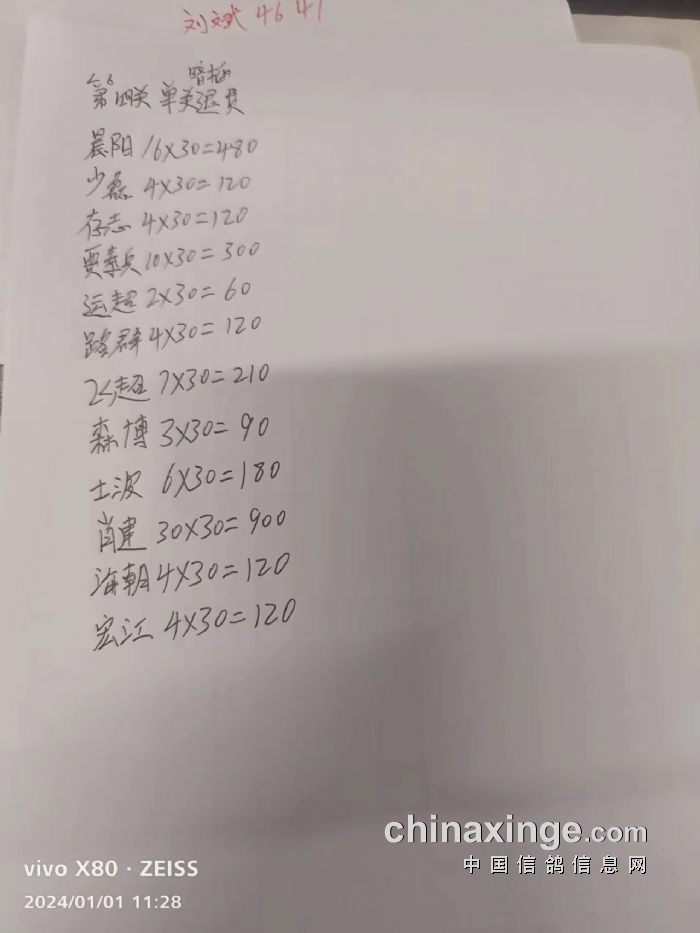 刘斌 46 41
暗插
第四关 单关退费
晨阳 16×30=480
少磊 4×30=120
存志 4×30=120
贾素兵 10×30=300
运超 2×30=60
路群 4×30=120
飞超 7×30=210
森博 3×30=90
士波 6×30=180
肖建 30×30=900
海朝 4×30=120
宏江 4×30=120
chinaxinge.com
中国信鸽信息网
vivo X80 · ZEISS
2024/01/01 11:28